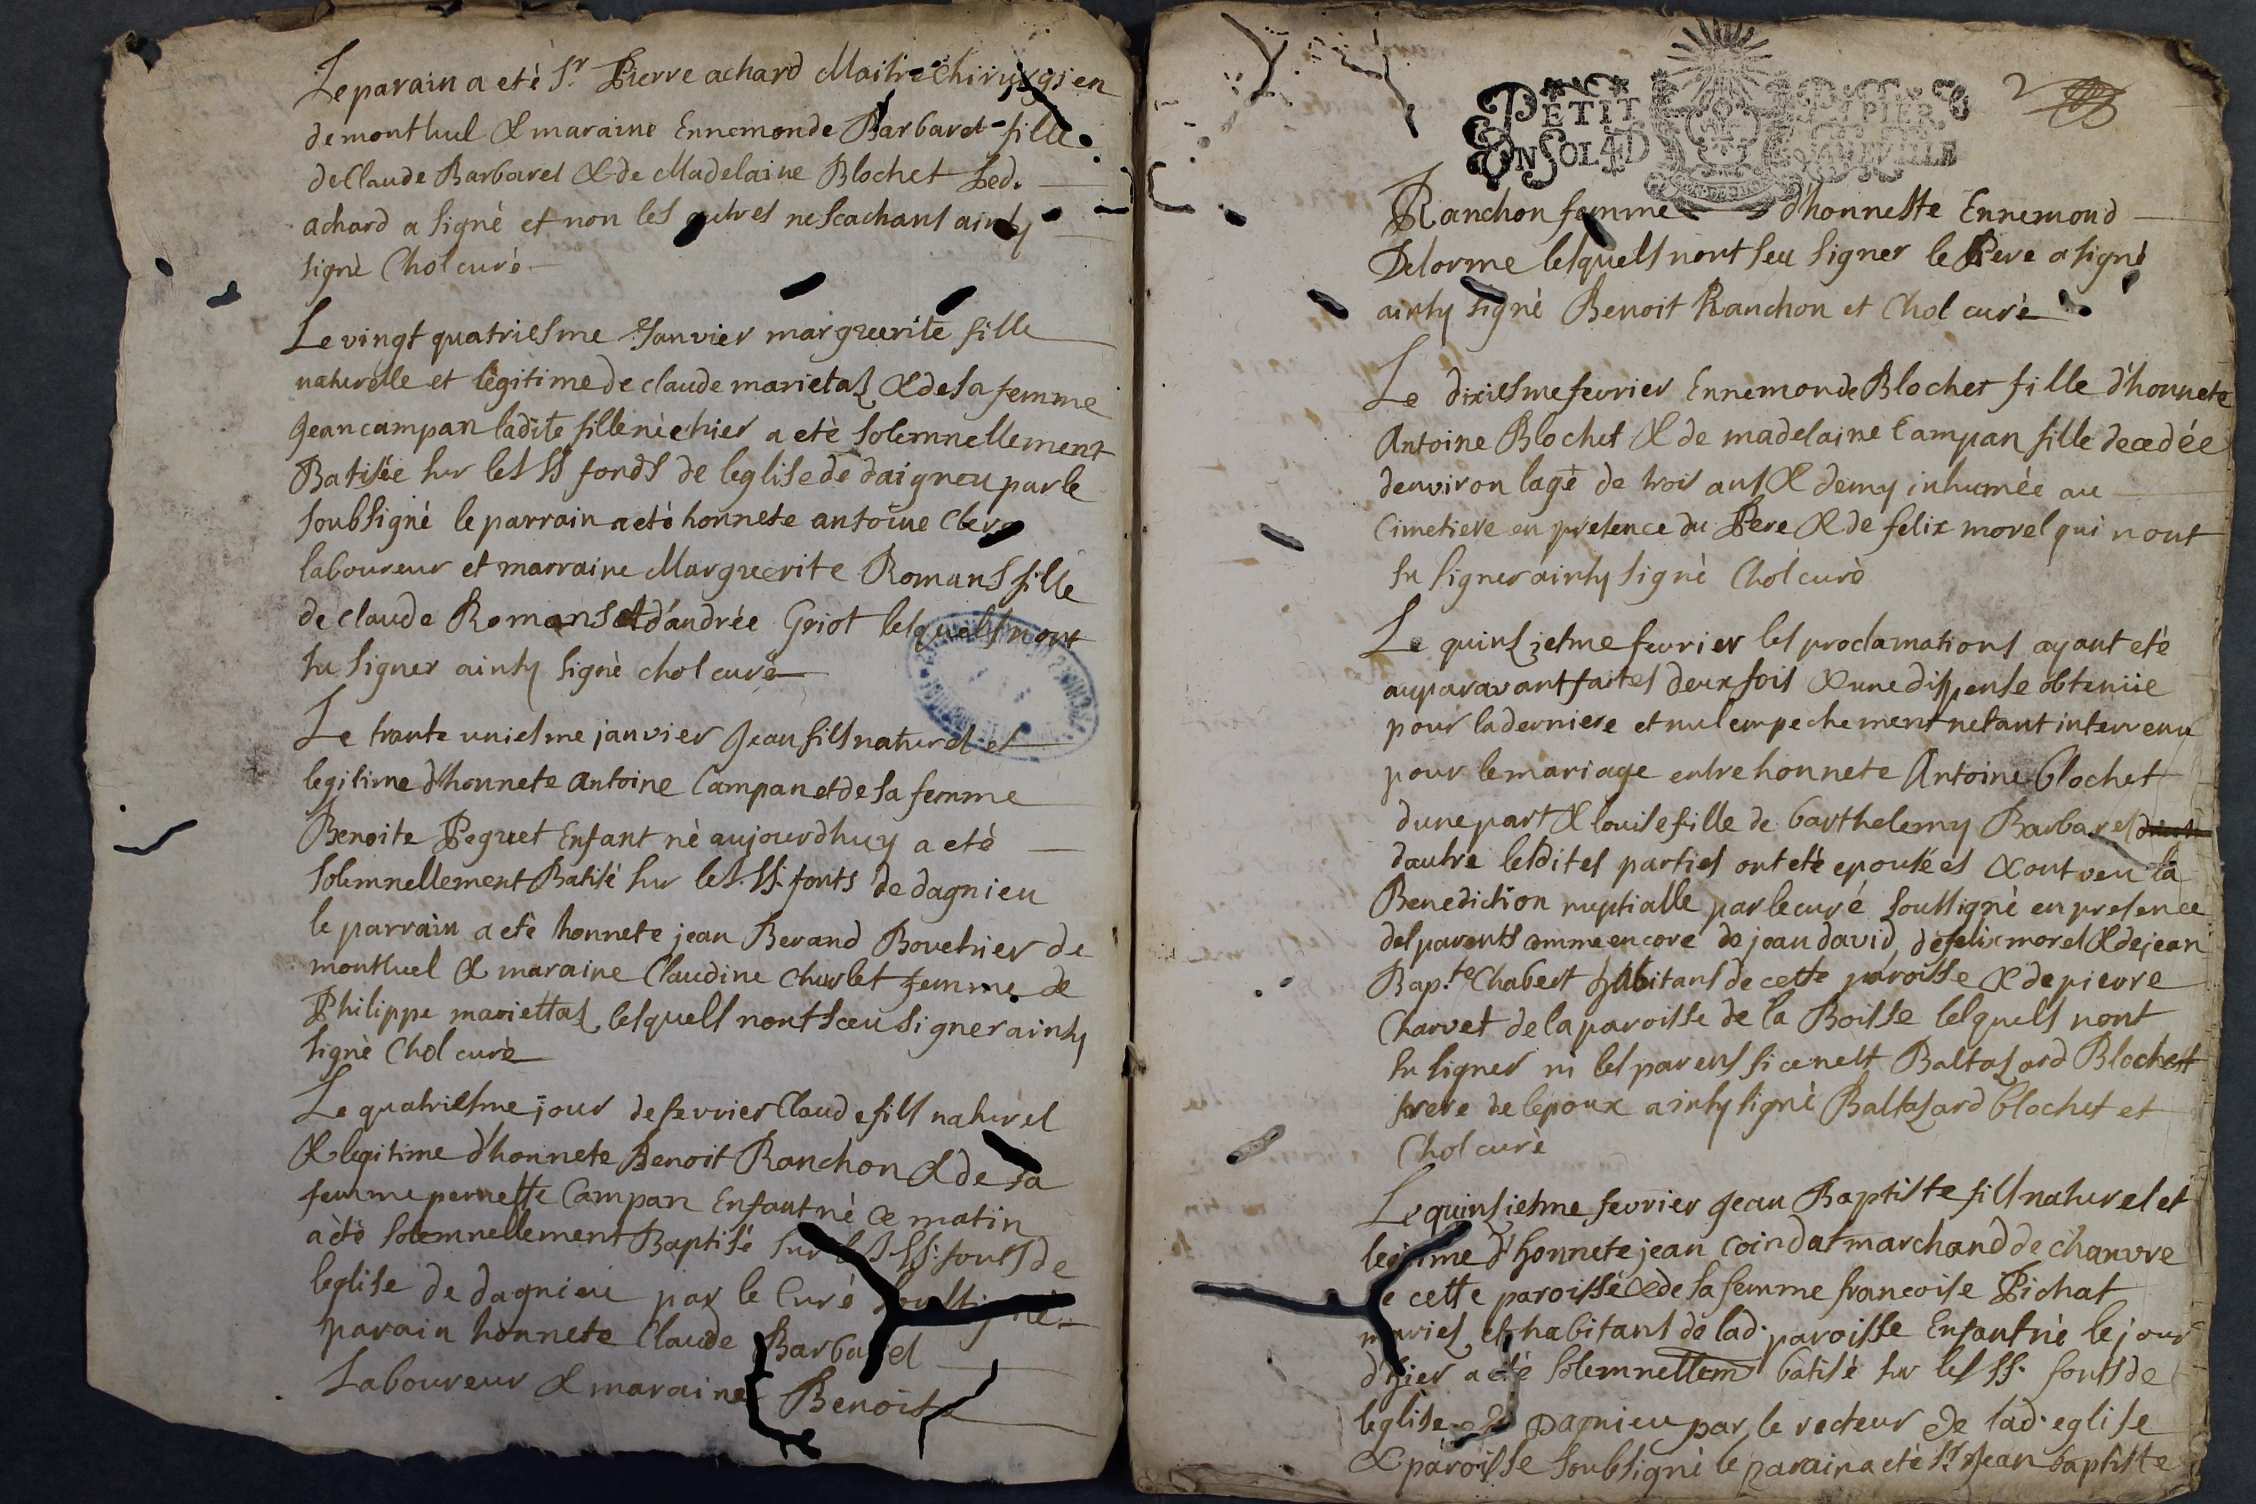 Le parain a eté Sr. Pierre achard Maitre Chirurgien
de montluel & maraine Ennemonde Barbaret fille
de Claude Barbaret & de Madelaine Blochet Led.
achard a signé et non les autres ne scachans ainsy
signé Chol curé
Le vingt quatriesme Janvier marguerite fille
naturelle et légitime de claude marietaz & de sa femme
Jean campan ladite fille née hier a eté solemnellement
Batisée sur les SS fonds de leglise de daigneu par le
soubsigné le parrain a eté honnete antoine Clerc
laboureur et marraine Marguerite Romans fille
de claude Romans et d'andrée Griot lesquels nont
su signer ainsy signé chol curé
Le trante uniesme janvier Jean fils naturel et
legitime d'honnete Antoine Campan et de sa femme
Benoite Peguet Enfant né aujourdhuy a eté
solemnellement Batisé sur les SS. fonts de dagnieu
le parrain a eté honnete jean Berand Bouchier de
montluel & maraine Claudine Churlet femme de
Philippe mariettaz lesquels nont sceu signer ainsy
signé Chol curé
Le quatriesme jour de fevrier Claude fils naturel
& legitime d'honnete Benoit Ranchon & de sa
femme pernette Campan Enfant né ce matin
a été solemnellement Baptisé sur les SS. fonts de
leglise de dagnieu par le Curé soussigné
parain honnete Claude Barbaret
Laboureur & maraine Benoiste
PETIT PAPIER
UN SOL 4 D LA FEUILLE
2
Ranchon femme d'honneste Ennemond
Delorme lesquels nont seu signer le Pere a signé
ainsy signé Benoit Ranchon et Chol curé
Le dixiesme fevrier Ennemonde Blochet fille d'honnete
Antoine Blochet & de madelaine Campan fille decedée
denviron lage de trois ans & demy inhumée au
Cimetiere en presence du Pere & de felix morel qui nont
su signer ainsy signé Chol curé
Le quinsziesme fevrier les proclamations ayant eté
auparavant faites deux fois & une dispense obtenüe
pour la derniere et nul empechement netant intervenu
pour le mariage entre honnete Antoine blochet
dune part & louise fille de barthelemy Barbaret
dautre lesdites parties ont eté epousées & ont receu la
Benediction nuptialle par le curé soussigné en presence
des parents comme encore de jean david, de felix morel & de jean
Bap.te Chabert habitans de cette paroisse & de pierre
Charvet de la paroisse de la Boisse lesquels nont
su signer ni les parens si ce nest Baltasard Blochet
frere de lepoux ainsy signé Baltasard blochet et
Chol curé
Le quinsiesme fevrier Jean Baptiste fils naturel et
legitime d'honnete jean coindat marchand de chanvre
de cette paroisse & de sa femme francoise Pichat
mariez et habitans de lad. paroisse Enfant né le jour
d'hier a eté solemnellem batisé sur les SS. fonts de
leglise de Dagnieu par le recteur de lad. eglise
& paroisse soubsigné le parain a eté Sr. Jean baptiste